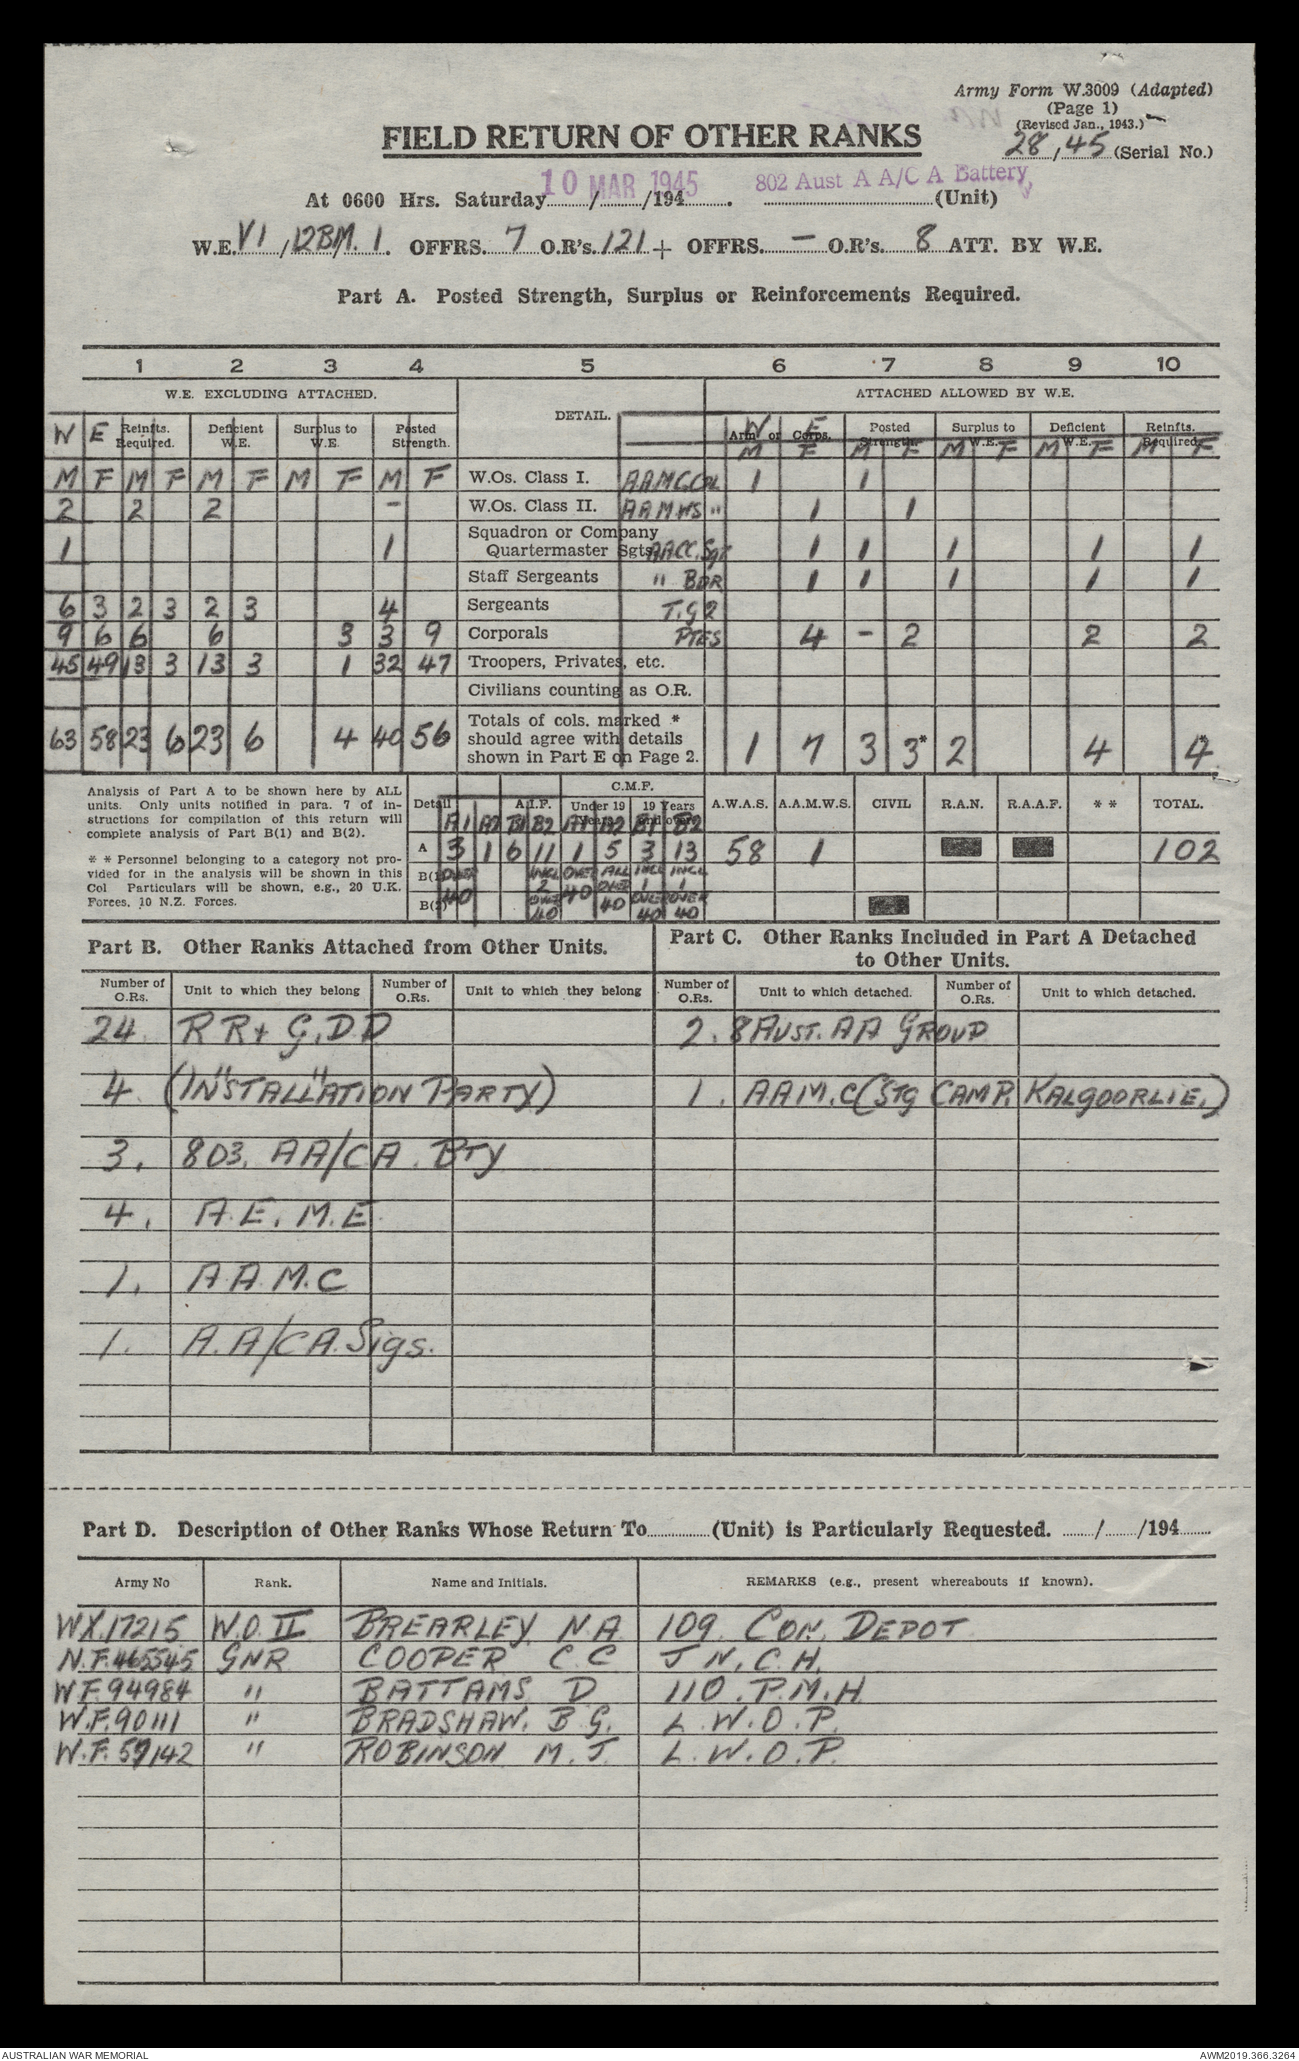 Army Form W.3009 (Adapted)
(Page 1)
(Revised Jan., 1943.)
28, 45 (Serial No.)
FIELD RETURN OF OTHER RANKS
At 0600 Hrs. Saturday 10 MAR 1945 /194 . 802 Aust A A/C A Battery (Unit)
W.E. VI /12BM. 1. OFFRS. 7 O.R's. 121 + OFFRS. — O.R's. 8 ATT. BY W.E.
Part A. Posted Strength, Surplus or Reinforcements Required.
1 2 3 4 5 6 7 8 9 10
W.E. EXCLUDING ATTACHED. DETAIL. ATTACHED ALLOWED BY W.E.
W E Reinfts. Required. Deficient W.E. Surplus to W.E. Posted Strength. Arm or Corps. W E Posted Strength. Surplus to W.E. Deficient W.E. Reinfts. Required
M F M F M F M F M F W.Os. Class I. A.A.M.C. CPL 1 1
M F M F M F M F M F
2 2 2 - W.Os. Class II. A.A.M.W.S " 1 1
1 1 Squadron or Company Quartermaster Sgts. AACC. Sgt 1 1 1 1 1
Staff Sergeants " BDR 1 1 1 1 1
6 3 2 3 2 3 4 Sergeants T.G 2
9 6 6 6 3 3 9 Corporals PTES 4 - 2 2 2
45 49 13 3 13 3 1 32 47 Troopers, Privates, etc.
Civilians counting as O.R.
63 58 23 6 23 6 4 40 56 Totals of cols. marked * should agree with details shown in Part E on Page 2. 1 7 3 3* 2 4 4
Analysis of Part A to be shown here by ALL
units. Only units notified in para. 7 of in-
structions for compilation of this return will
complete analysis of Part B(1) and B(2).
* * Personnel belonging to a category not pro-
vided for in the analysis will be shown in this
Col Particulars will be shown, e.g., 20 U.K.
Forces, 10 N.Z. Forces.
Detail A.I.F. C.M.F. Under 19 Years 19 Years and over A.W.A.S. A.A.M.W.S. CIVIL R.A.N. R.A.A.F. * * TOTAL.
A1 A2 B1 B2 A1 A2 B1 B2
A 3 1 6 11 1 5 3 13 58 1 102
B(1) OVER INCL OVER ALL INCL INCL
40 2 40 OVER 1 1
B(2) OVER 40 40 OVER 40 OVER 40
Part B. Other Ranks Attached from Other Units.
Number of O.Rs. Unit to which they belong Number of O.Rs. Unit to which they belong
24. R R + G, D D
4 " "
(INSTALLATION PARTY)
3. 803. AA/CA. BTY
4. A.E.M.E.
1. A.A.M.C
1. A.A/CA. Sigs.
Part C. Other Ranks Included in Part A Detached
to Other Units.
Number of O.Rs. Unit to which detached. Number of O.Rs. Unit to which detached.
2. 8 AUST. AA GROUP
1. A.A.M.C (STG CAMP. KALGOORLIE.)
Part D. Description of Other Ranks Whose Return To (Unit) is Particularly Requested. / /194
Army No Rank. Name and Initials. REMARKS (e.g., present whereabouts if known).
WX.17215 W.O. II BREARLEY N.A 109. CON. DEPOT
N.F.465545 GNR COOPER C C J N. C. H.
W F.94984 " BATTAMS D 110. P.M.H
W.F.90111 " BRADSHAW. B G. L. W. O. P.
W.F.59142 " ROBINSON M. J. L. W. O. P.
AUSTRALIAN WAR MEMORIAL
AWM2019.366.3264